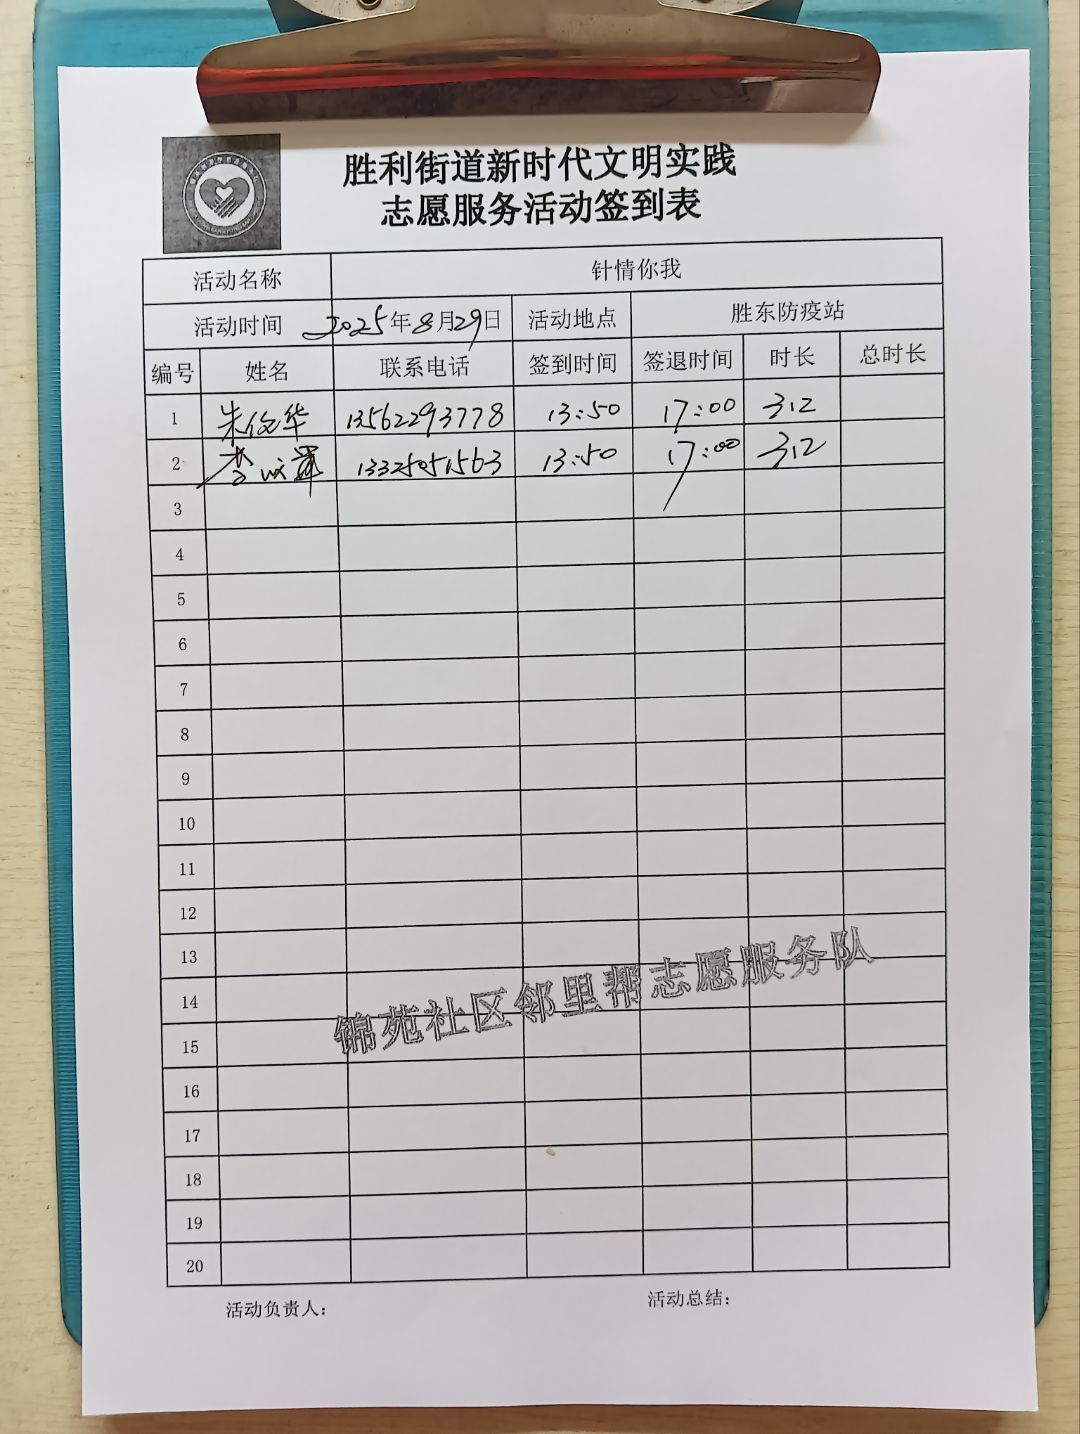 胜利街道新时代文明实践
志愿服务活动签到表
活动名称 针情你我
活动时间 2025年8月29日 活动地点 胜东防疫站
编号 姓名 联系电话 签到时间 签退时间 时长 总时长
1 朱俊华 13562293778 13:50 17:00 3.2
2 李 13325051563 13:50 17:00 3.2
3
4
5
6
7
8
9
10
11
12
13
14
15
16
17
18
19
20
锦苑社区邻里帮志愿服务队
活动负责人: 活动总结: